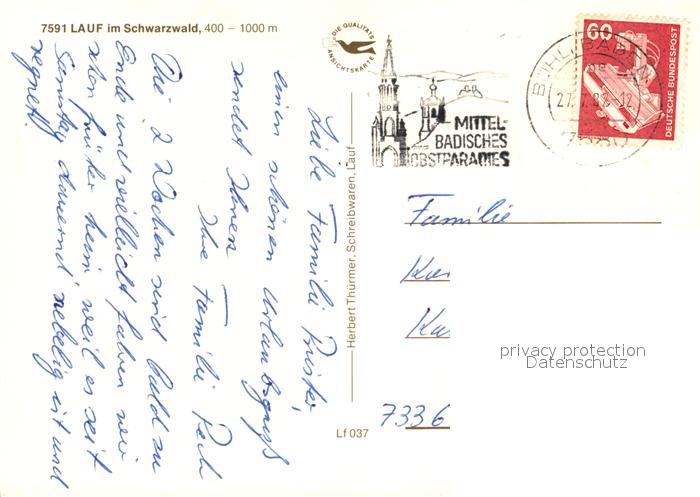 7591 LAUF im Schwarzwald, 400 – 1000 m
DIE QUALITÄTS
ANSICHTSKARTE
Liebe Familie
einen schönen Urlaubsgruß
sendet Ihnen
Ihre Familie Pech
Die 2 Wochen sind bald zu
Ende und vielleicht fahren wir
schon früher heim weil es seit
Samstag dauernd nebelig ist und
regnet!
Herbert Thürmer, Schreibwaren, Lauf
Lf 037
MITTEL-
BADISCHES
OBSTPARADIES
BÜHL, BADEN
60
DEUTSCHE BUNDESPOST
Familie
7336
privacy protection
Datenschutz